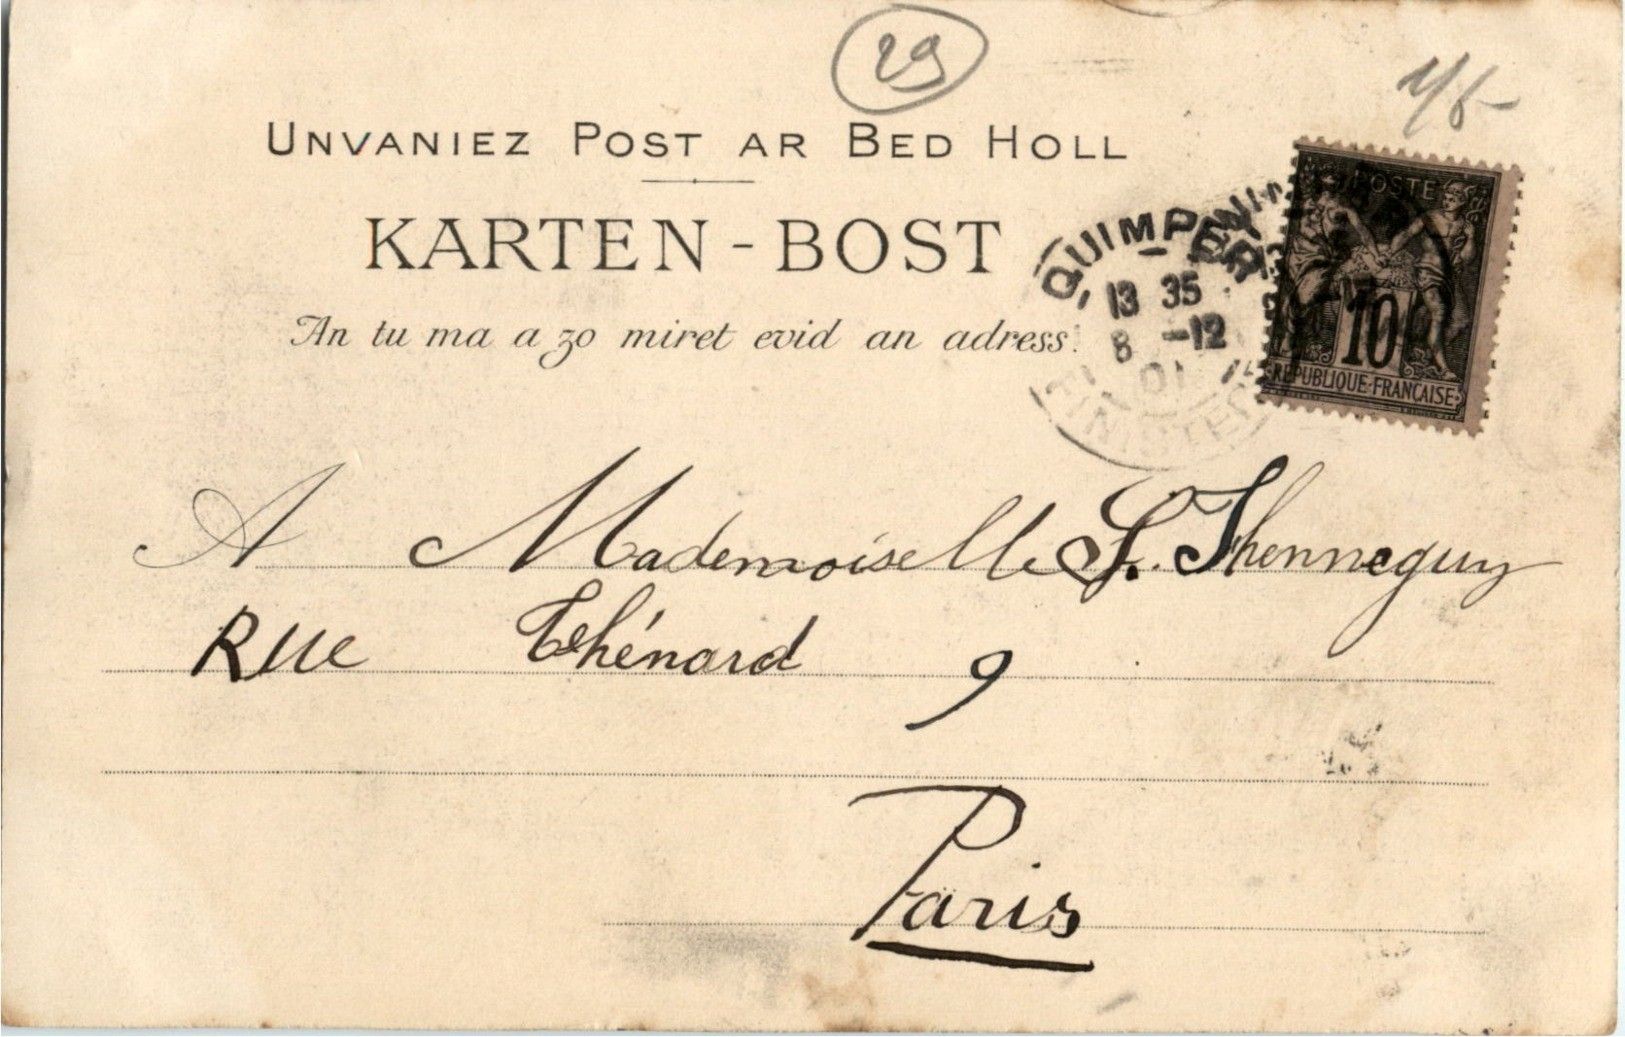 29
UNVANIEZ POST AR BED HOLL
KARTEN-BOST
An tu ma a zo miret evid an adress.
QUIMPER
13 35
8 -12
01
FINISTERE
POSTE
10
REPUBLIQUE FRANÇAISE
A Mademoiselle S. Thenneguy
Rue Thénard 9
Paris